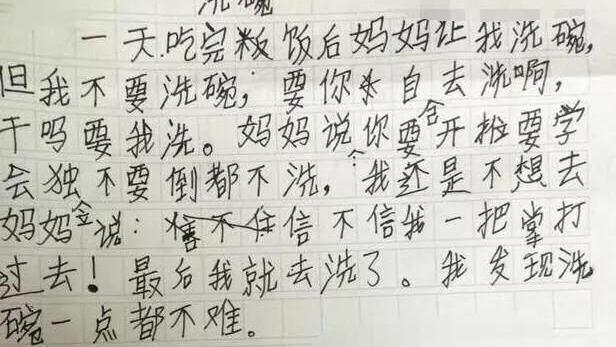 洗碗
一天吃完板饭后妈妈让我洗碗,
但我不要洗碗,要你自去洗啊,
干吗要我洗。妈妈说你要会开始要学
会独不要倒都不洗,我还是不想去
妈妈会说:信不信我一把掌打
过去!最后我就去洗了。我发现洗
碗一点都不难。